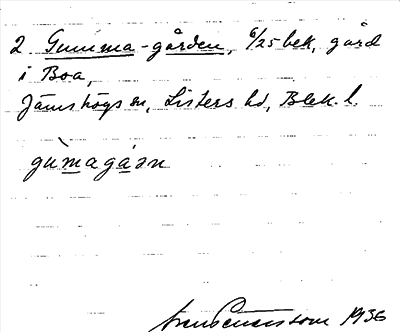 2. Gumma-gården, 6/25 bek. gård
i Boa,
Jämshögs sn, Listers hd, Blek. l.
gùmagáɘn
1936